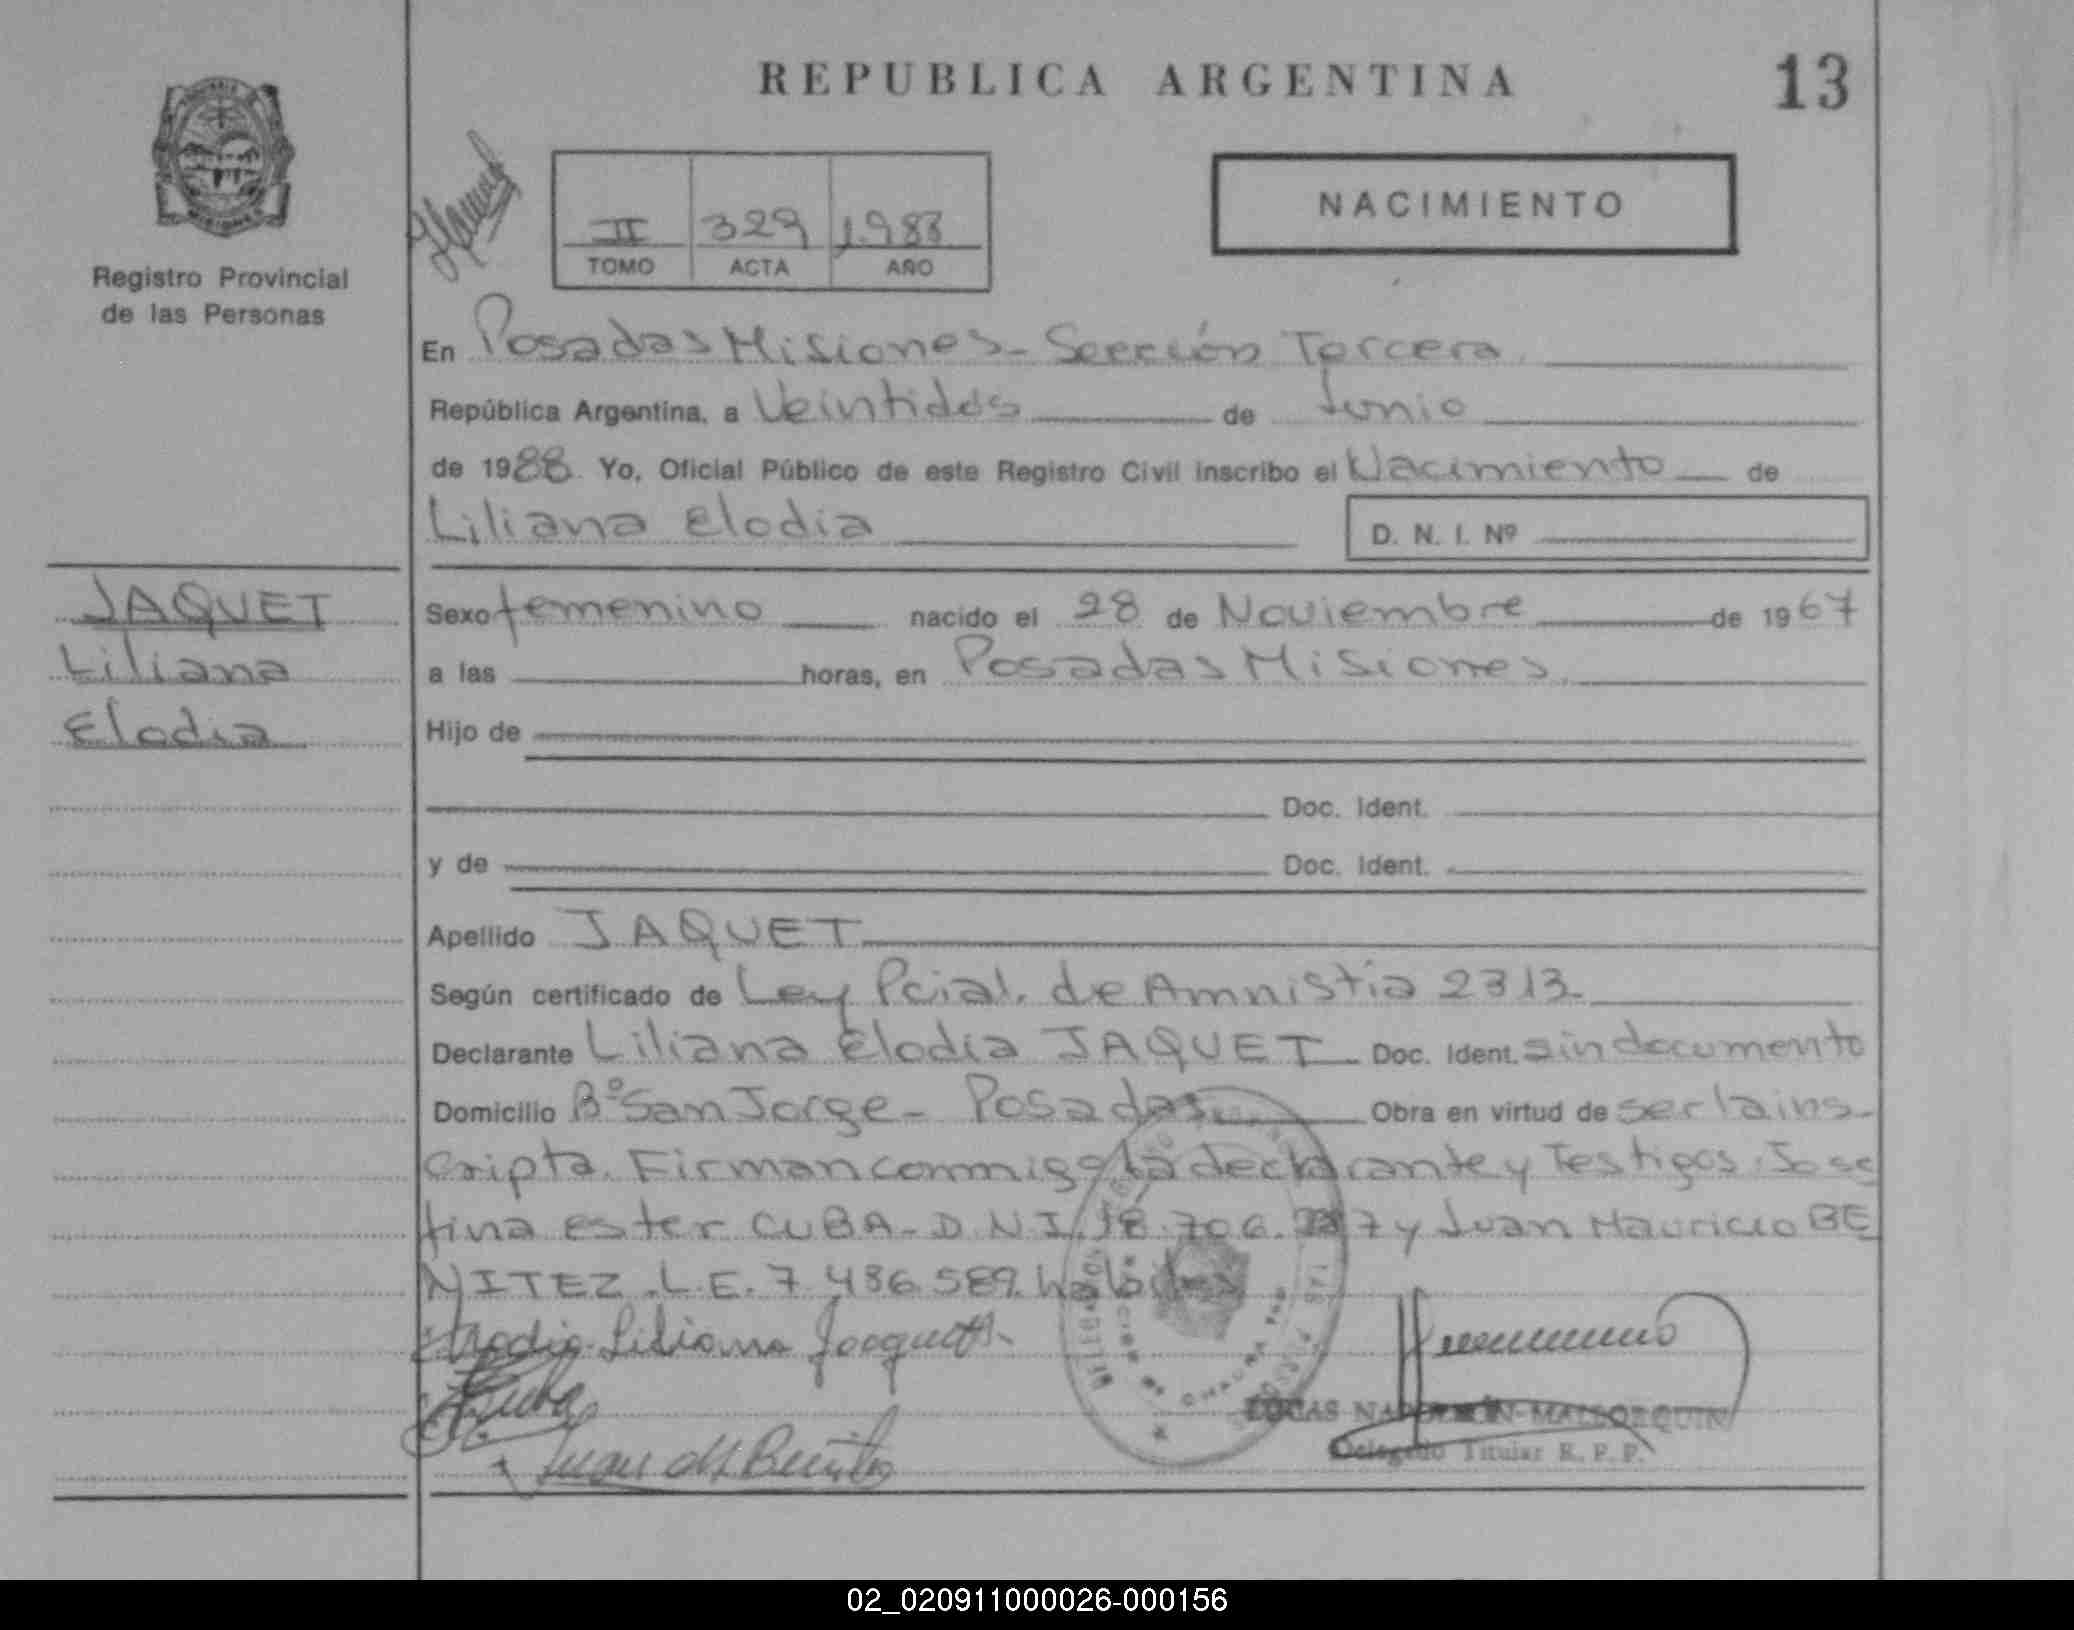 REPUBLICA ARGENTINA
13
Registro Provincial
de las Personas
II 329 1.988
TOMO ACTA AÑO
NACIMIENTO
En Posadas Misiones - Sección Tercera
República Argentina, a Veintidós de Junio
de 1988. Yo, Oficial Público de este Registro Civil inscribo el Nacimiento de
Liliana Elodia
D. N. I. Nº
JAQUET
Liliana
Elodia
Sexo femenino nacido el 28 de Noviembre de 1967
a las horas, en Posadas Misiones
Hijo de
Doc. Ident.
y de Doc. Ident.
Apellido JAQUET
Según certificado de Ley Pcial. de Amnistía 2313
Declarante Liliana Elodia JAQUET Doc. Ident. sin documento
Domicilio Bº San Jorge - Posadas Obra en virtud de ser la ins-
cripta. Firman conmigo la declarante y Testigos: Jose
fina Ester CUBA - D.N.I. 18.706. y Juan Mauricio BE
NITEZ. L.E. 7.486.589. habides
Elodia Liliana Jacquet
Cuba
Juan M Benitez
LUCAS
Delegado Titular R. P. P.
02_020911000026-000156